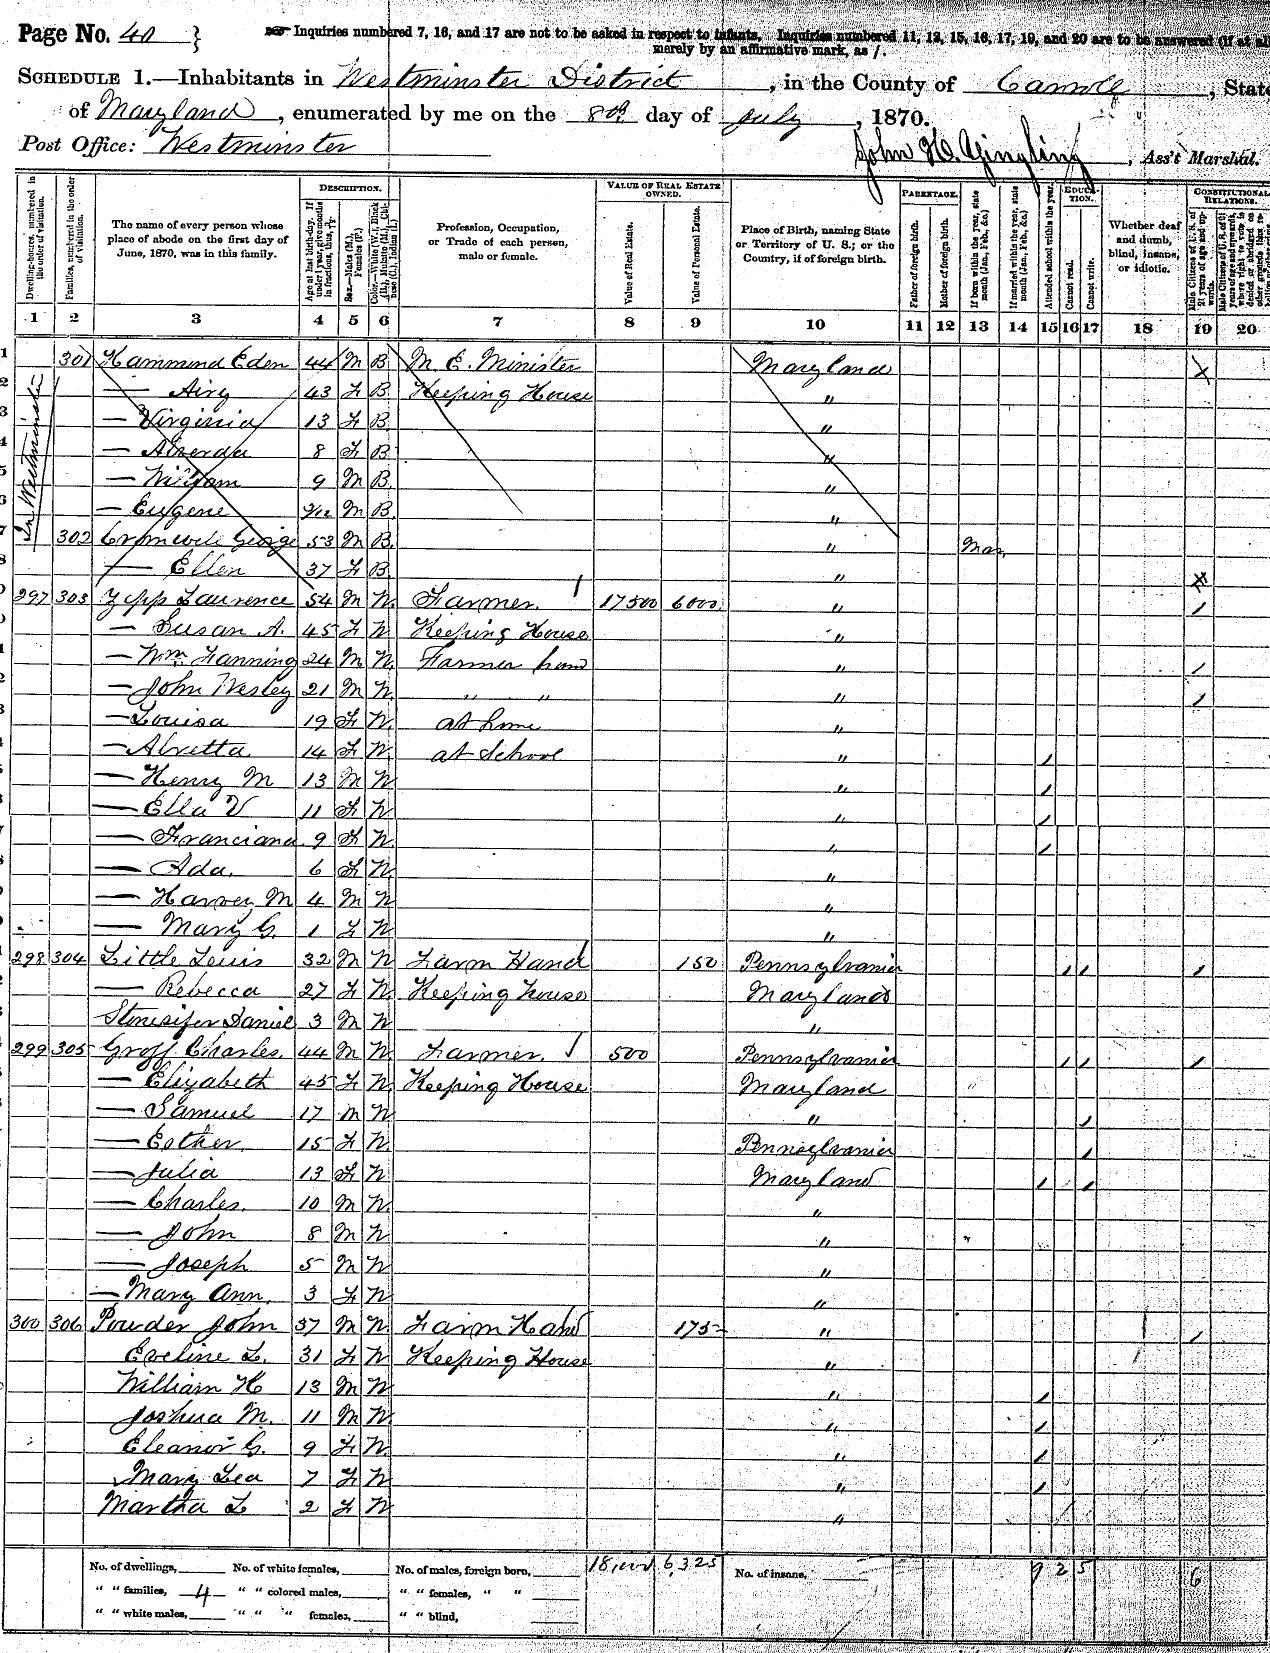 Page No. 40 }
Inquiries numbered 7, 16, and 17 are not to be asked in respect to infants. Inquiries numbered 11, 12, 15, 16, 17, 19, and 20 are to be answered (if at all
merely by an affirmative mark, as /.
SCHEDULE 1.—Inhabitants in Westminster District, in the County of Carroll, State
of Maryland, enumerated by me on the 8th day of July, 1870.
Post Office: Westminster
John H. Gingling, Ass't Marshal.
DESCRIPTION. VALUE OF REAL ESTATE OWNED. PARENTAGE. EDUCATION. CONSTITUTIONAL RELATIONS.
Dwelling-houses, numbered in the order of visitation.
Families, numbered in the order of visitation.
The name of every person whose place of abode on the first day of June, 1870, was in this family.
Age at last birth-day. If under 1 year, give months in fractions, thus, 3/12
Sex.—Males (M.), Females (F.)
Color.—White (W.), Black (B.), Mulatto (M.), Chinese (C.), Indian (I.)
Profession, Occupation, or Trade of each person, male or female.
Value of Real Estate.
Value of Personal Estate.
Place of Birth, naming State or Territory of U. S.; or the Country, if of foreign birth.
Father of foreign birth.
Mother of foreign birth.
If born within the year, state month (Jan., Feb., &c.)
If married within the year, state month (Jan., Feb., &c.)
Attended school within the year.
Cannot read.
Cannot write.
Whether deaf and dumb, blind, insane, or idiotic.
Male Citizens of U.S. of 21 years of age and upwards.
1 2 3 4 5 6 7 8 9 10 11 12 13 14 15 16 17 18 19 20
In Westminster
301 Hammond Eden 44 M B M. E. Minister Maryland
— Airy 43 F B Keeping House "
— Virginia 13 F B "
— Alverda 8 F B "
— William 9 M B "
— Eugene M B "
302 Cromwell George 53 M B " Mar,
— Ellen 37 F B "
297 303 Zepp Laurence 54 M W Farmer 17500 6000 " /
— Susan A. 45 F W Keeping House "
— Wm. Fanning 24 M W Farmer " /
— John Wesley 21 M W " " " /
— Louisa 19 F W at home "
— Alvetta 14 F W at School " /
— Henry M 13 M W " /
— Ella V 11 F W " /
— Franciana 9 F W " /
— Ada. 6 F W "
— Harvey M 4 M W "
— Mary G. 1 F W "
298 304 Little Lewis 32 M W Farm Hand 150 Pennsylvania / / /
— Rebecca 27 F W Keeping house Maryland
Stonesifer Daniel 3 M W "
299 305 Groff Charles. 44 M W Farmer. 500 Pennsylvania / / /
— Elizabeth 45 F W Keeping House Maryland
— Samuel 17 M W " /
— Esther. 15 F W Pennsylvania /
— Julia 13 F W Maryland / /
— Charles. 10 M W "
— John 8 M W "
— Joseph 5 M W "
— Mary Ann. 3 F W "
300 306 Powder John 37 M W Farm Hand 175 " /
Eveline L. 31 F W Keeping House "
William H 13 M W " /
Joshua M. 11 M W " /
Eleanor G. 9 F W " /
Mary Lea 7 F W " /
Martha L 2 F W "
No. of dwellings, No. of white females, No. of males, foreign born, 18,000 6,325 No. of insane, 9 2 5 6
" " families, 4 " " colored males, " " females, " "
" " white males, " " " females, " " blind,